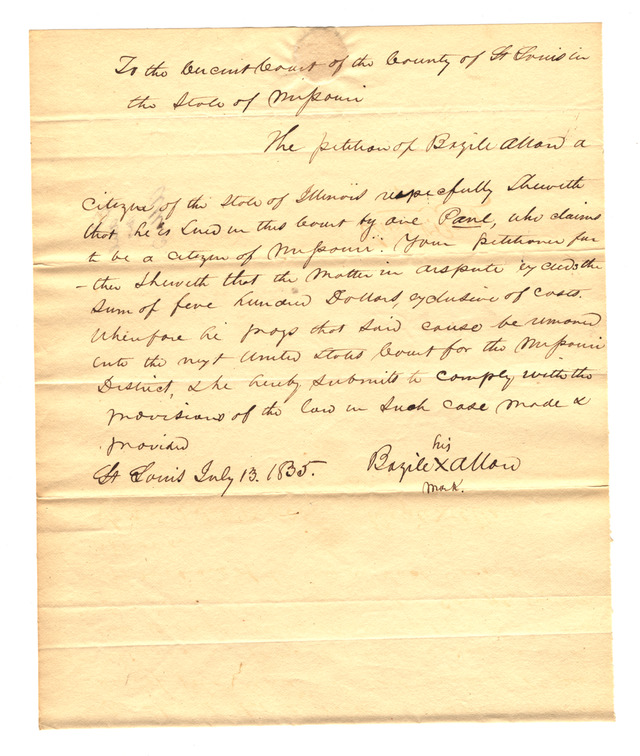 To the Circuit Court of the County of St Louis in
the State of Missouri
The petition of Bazile Allard a
citizen of the State of Illinois respecfully Sheweth
that he is Sued in this Court by one Parie, who claims
to be a citizen of Missouri. Your petitioner fur
-ther Sheweth that the Matter in dispute exceeds the
Sum of five hundred Dollars, exclusive of costs.
Wherefore he prays that said cause be removed
into the next United States Court for the Missouri
District, & he hereby submits to comply with the
provisions of the law in Such case made &
provided
St Louis July 13. 1835.
his
Bazile X Allard
mark.